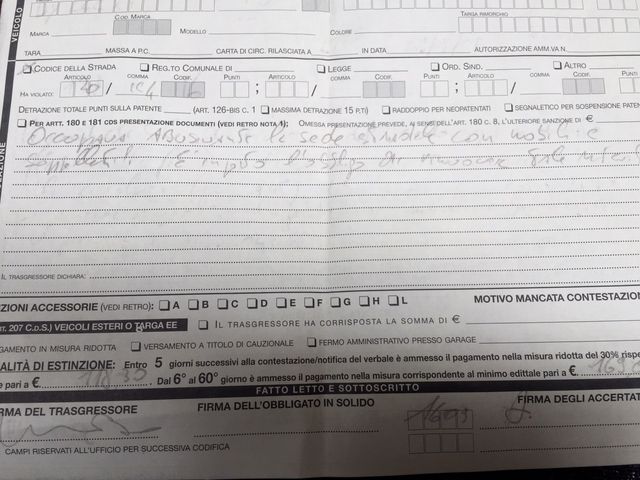 VEICOLO
MARCA COD. MARCA MODELLO COLORE TARGA RIMORCHIO
TARA MASSA A P.C. CARTA DI CIRC. RILASCIATA A IN DATA AUTORIZZAZIONE AMM.VA N.
CODICE DELLA STRADA REG.TO COMUNALE DI LEGGE ORD. SIND. ALTRO
ARTICOLO COMMA CODIF. PUNTI ARTICOLO COMMA CODIF. PUNTI ARTICOLO COMMA CODIF.
HA VIOLATO: 20 / ; / ; /
DETRAZIONE TOTALE PUNTI SULLA PATENTE (ART. 126-BIS C. 1 MASSIMA DETRAZIONE 15 P.TI) RADDOPPIO PER NEOPATENTATI SEGNALETICO PER SOSPENSIONE PATEN
PER ARTT. 180 E 181 CDS PRESENTAZIONE DOCUMENTI (VEDI RETRO NOTA 1); OMESSA PRESENTAZIONE PREVEDE, AI SENSI DELL'ART. 180 C. 8, L'ULTERIORE SANZIONE DI €
la sede con mobili e
di rimuovere
IL TRASGRESSORE DICHIARA:
ZIONI ACCESSORIE (VEDI RETRO): A B C D E F G H L MOTIVO MANCATA CONTESTAZION
RT. 207 C.D.S.) VEICOLI ESTERI O TARGA EE IL TRASGRESSORE HA CORRISPOSTA LA SOMMA DI €
AGAMENTO IN MISURA RIDOTTA VERSAMENTO A TITOLO DI CAUZIONALE FERMO AMMINISTRATIVO PRESSO GARAGE
ALITÀ DI ESTINZIONE: Entro 5 giorni successivi alla contestazione/notifica del verbale è ammesso il pagamento nella misura ridotta del 30% rispe
e pari a € 118,30 Dal 6° al 60° giorno è ammesso il pagamento nella misura corrispondente al minimo edittale pari a € 169,0
FATTO LETTO E SOTTOSCRITTO
RMA DEL TRASGRESSORE FIRMA DELL'OBBLIGATO IN SOLIDO FIRMA DEGLI ACCERTAT
1693
CAMPI RISERVATI ALL'UFFICIO PER SUCCESSIVA CODIFICA